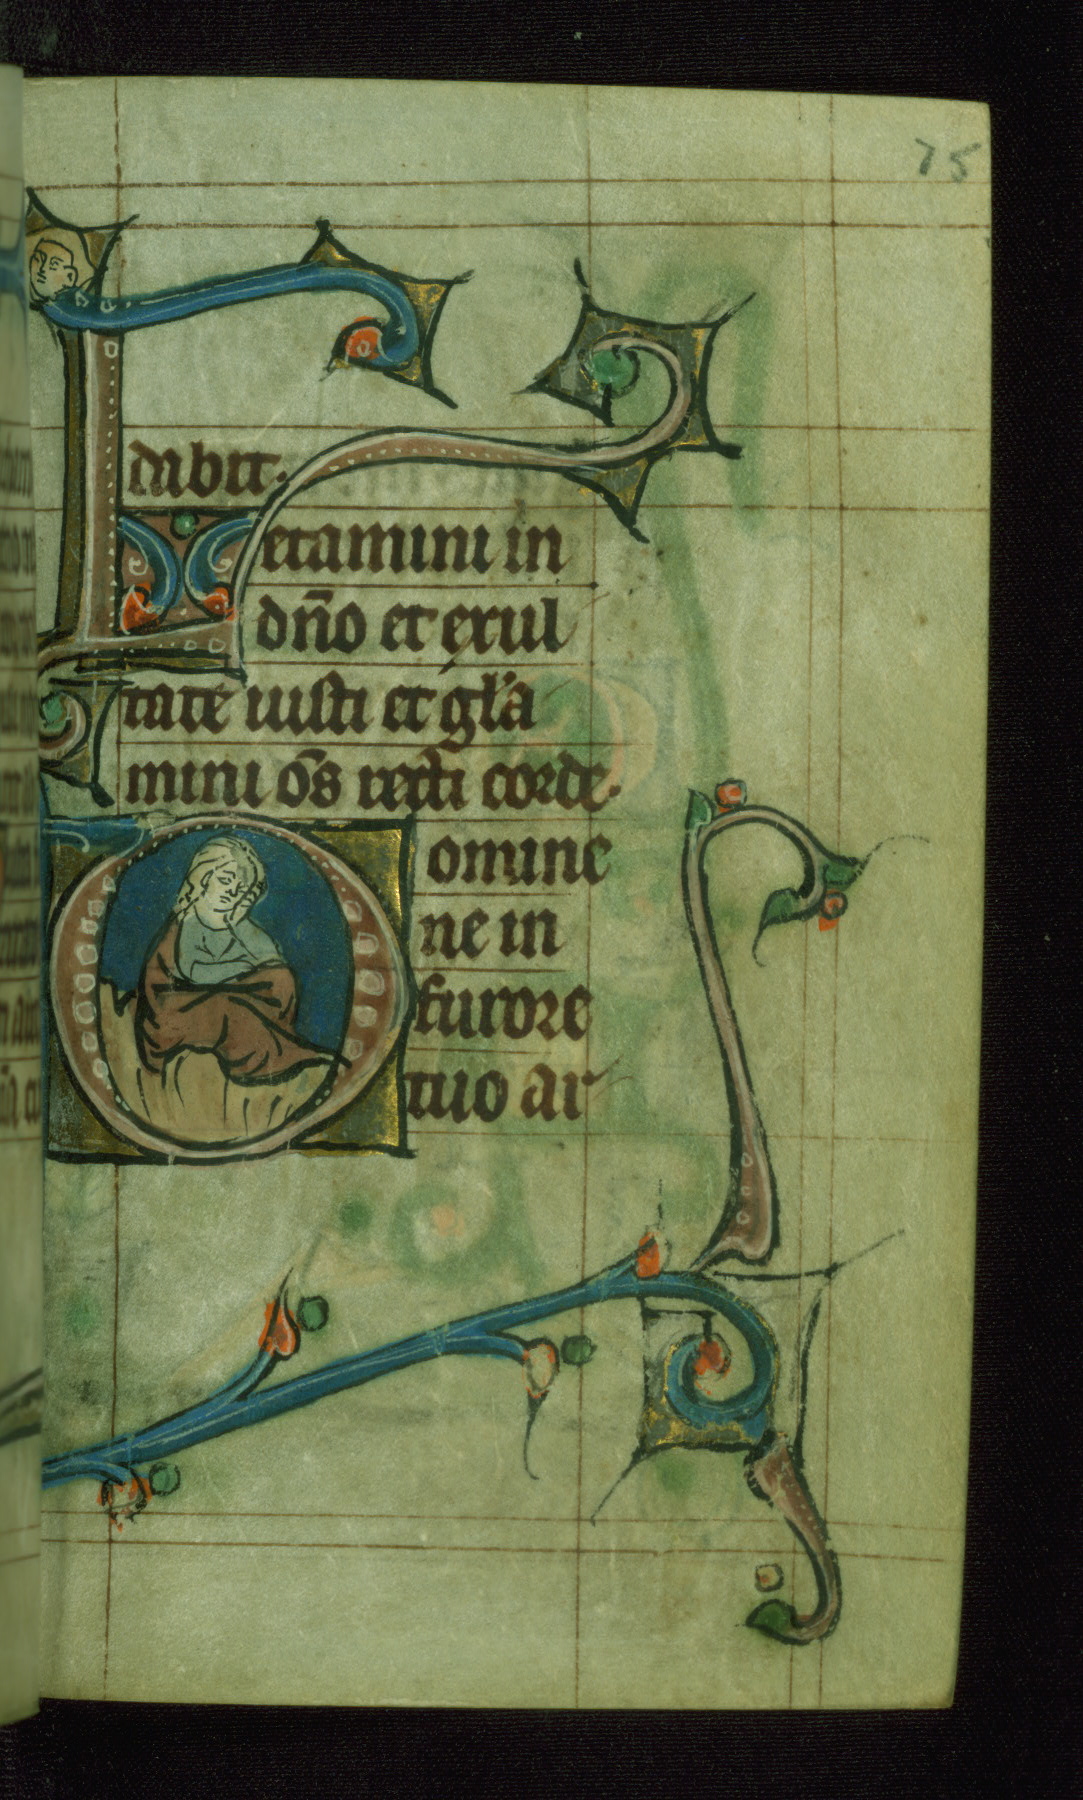 75
dabit.
Letamini in
dn̄o et exul
tate iusti et gl'a
mini o̅s recti corde.
Domine
ne in
furore
tuo ar